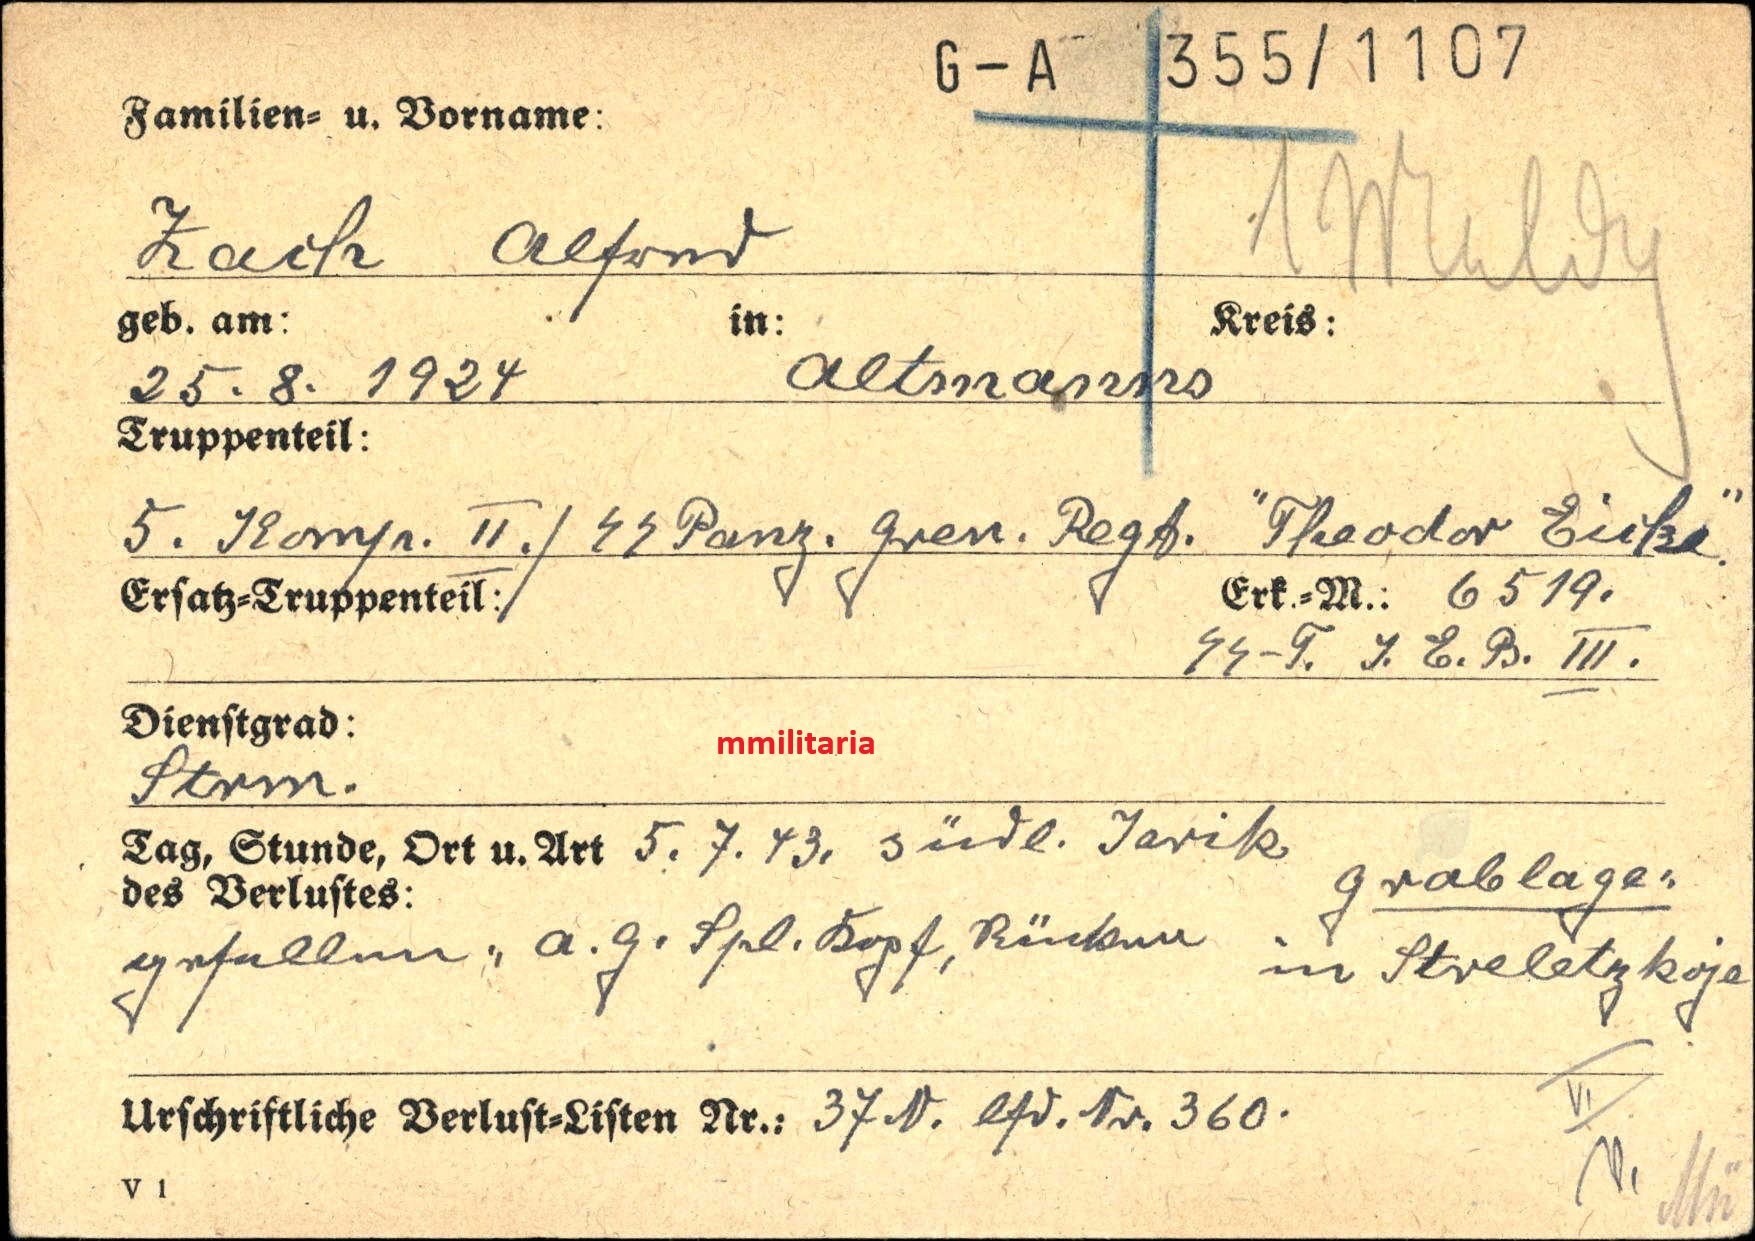 G-A 355/1107
Familien- u. Vorname:
Zach Alfred
geb. am: in: Kreis:
25. 8. 1924 Altmanns
Truppenteil:
5. Komp. II./ SS Panz. Gren. Regt. "Theodor Eicke".
Ersatz-Truppenteil: Erk.-M.: 6519.
SS-T. J. E. B. III.
Dienstgrad:
Strm.
mmilitaria
Tag, Stunde, Ort u. Art 5. 7. 43. südl. Jarik
des Verlustes: Grablage:
gefallen, A. G. Spl. Kopf, Rücken in Streletzkoje
Urschriftliche Verlust-Listen Nr.: 37 N. lfd. Nr. 360.
V 1